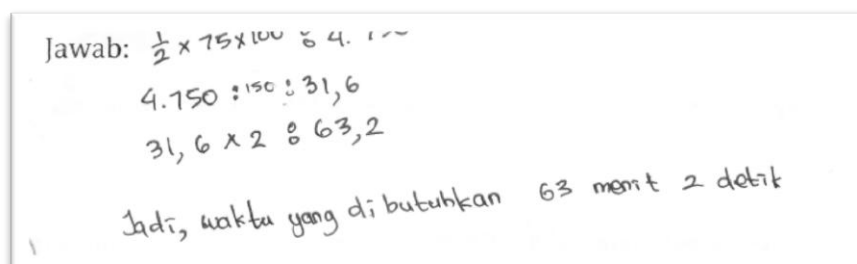 Jawab: 1/2 × 75 × 100 : 4.
4.750 : 150 : 31,6
31,6 × 2 : 63,2
Jadi, waktu yang dibutuhkan 63 menit 2 detik